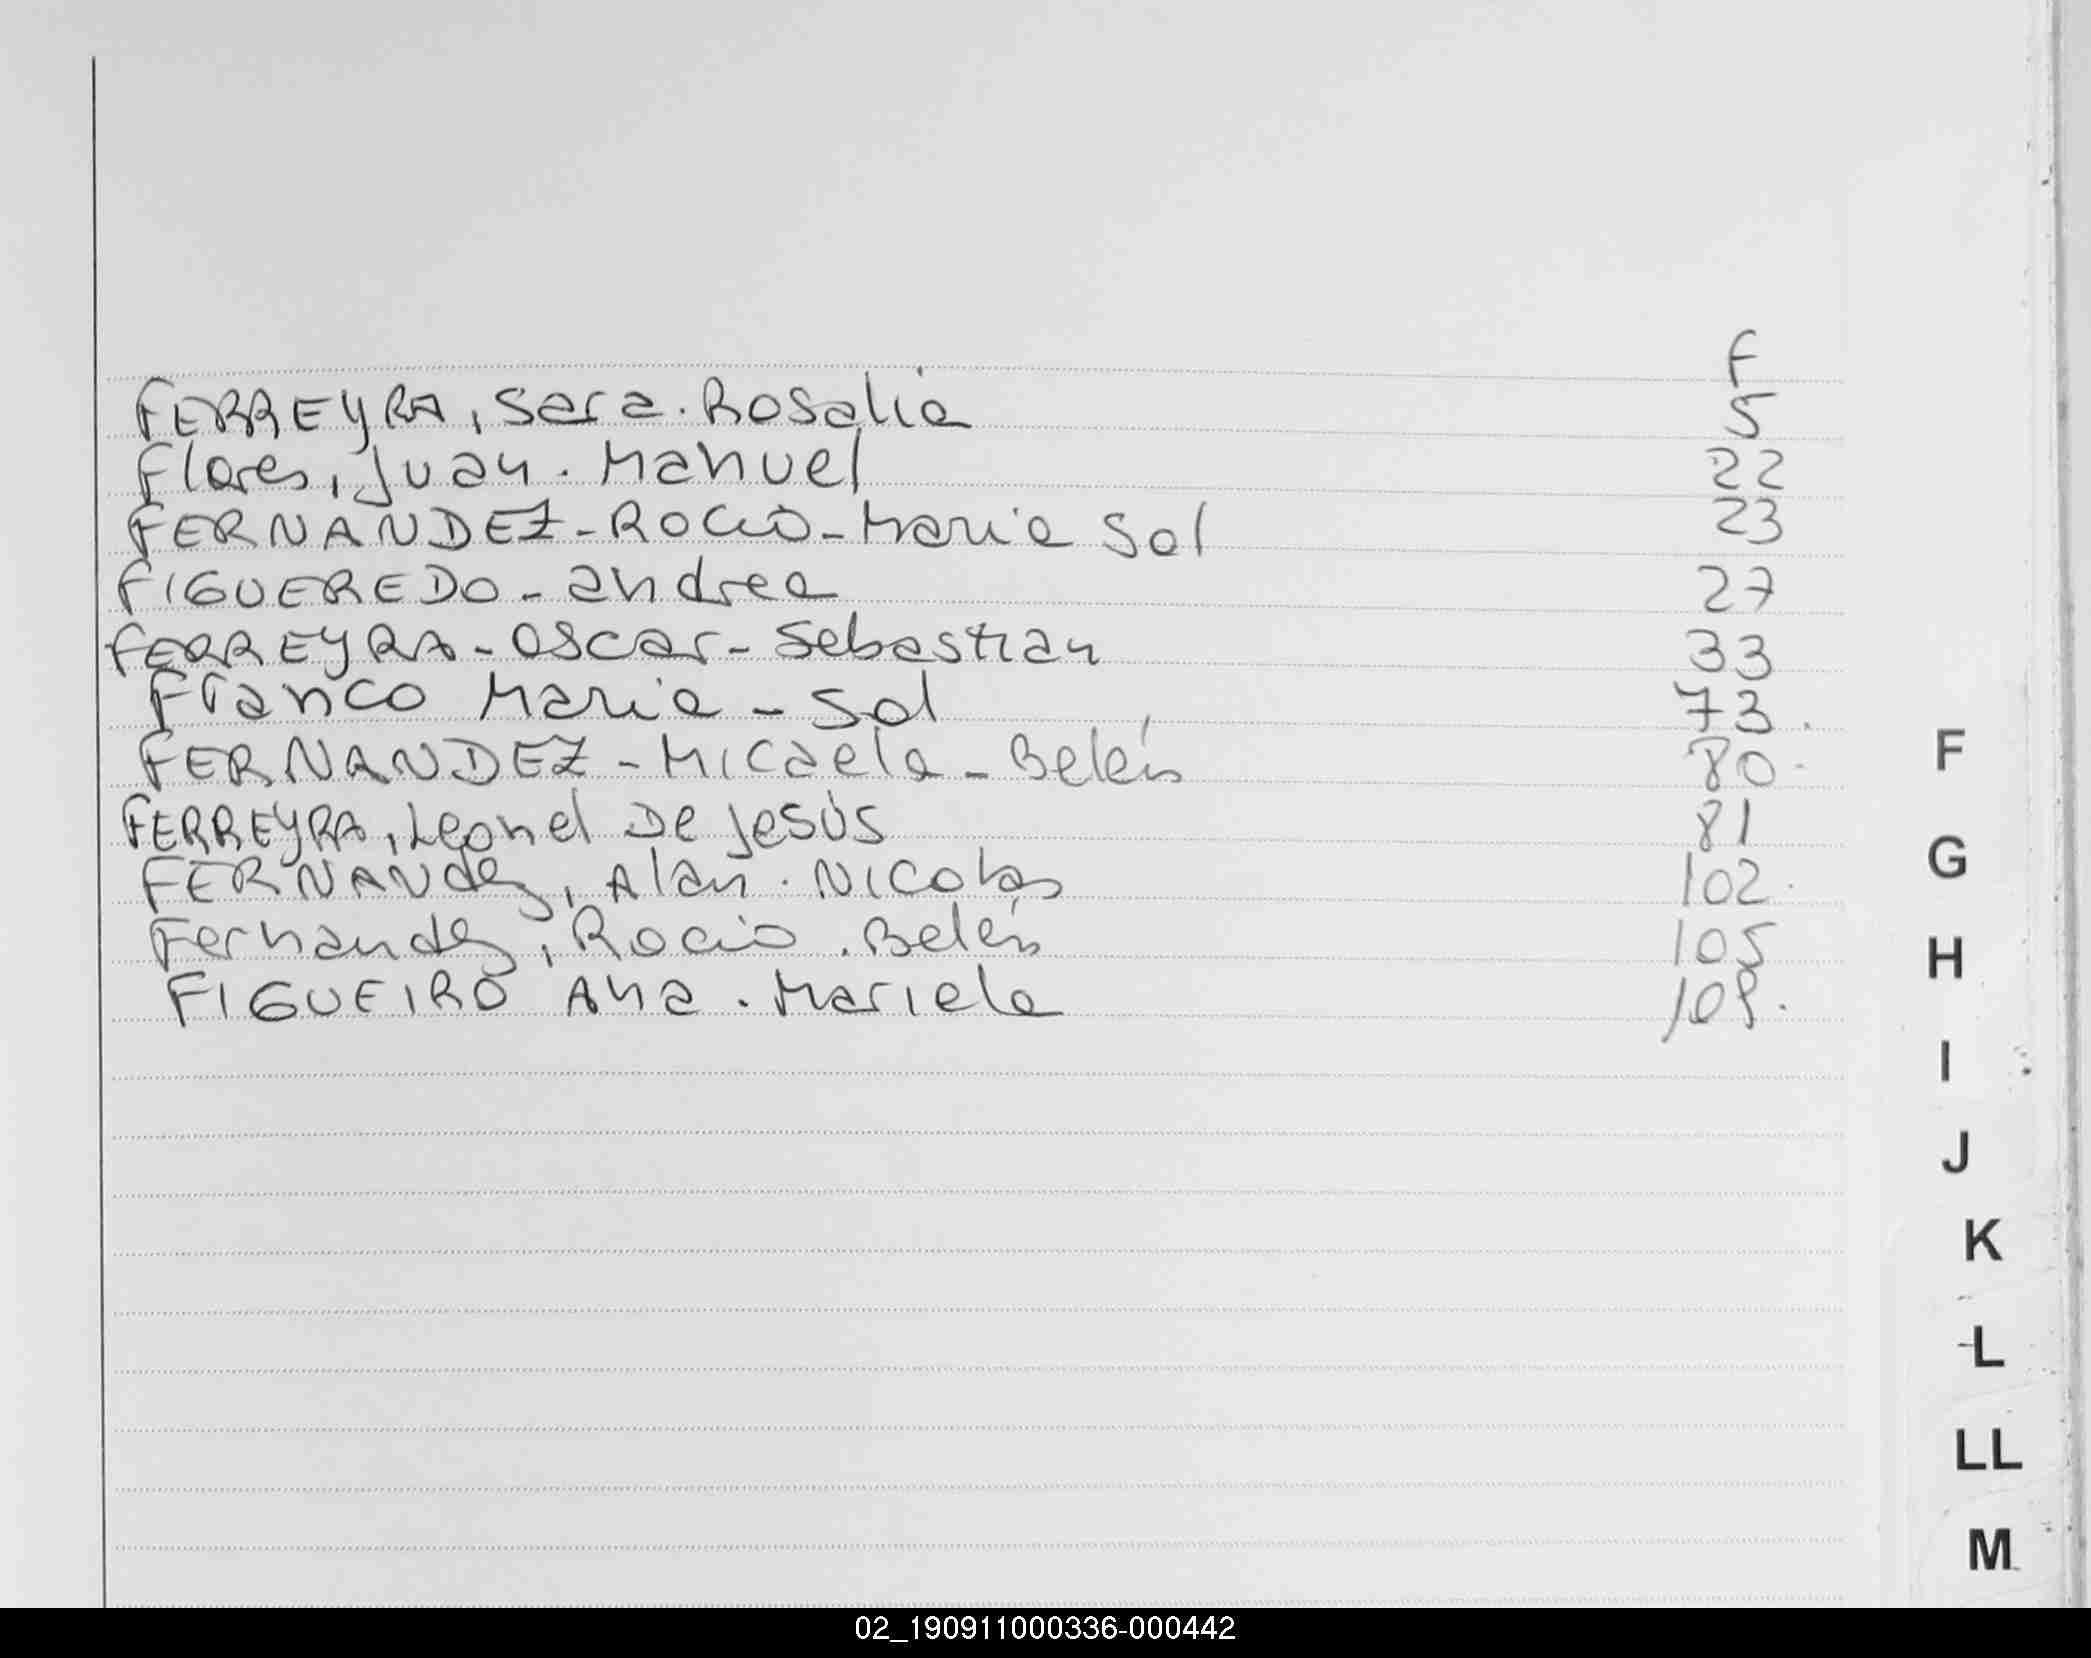 F
FERREYRA, Sara. Rosalia 5
Flores, Juan. Manuel 22
FERNANDEZ - ROCIO - Maria Sol 23
FIGUEREDO - andrea 27
FERREYRA - Oscar - Sebastian 33
Franco Maria - Sol 73.
FERNANDEZ - Micaela - Belén 80.
FERREYRA, Leonel De Jesús 81
FERNANdez, Alan. Nicolas 102.
Fernandez, Rocio. Belén 105
FIGUEIRO Ana. Mariela 109.
F
G
H
I
J
K
L
LL
M
02_190911000336-000442